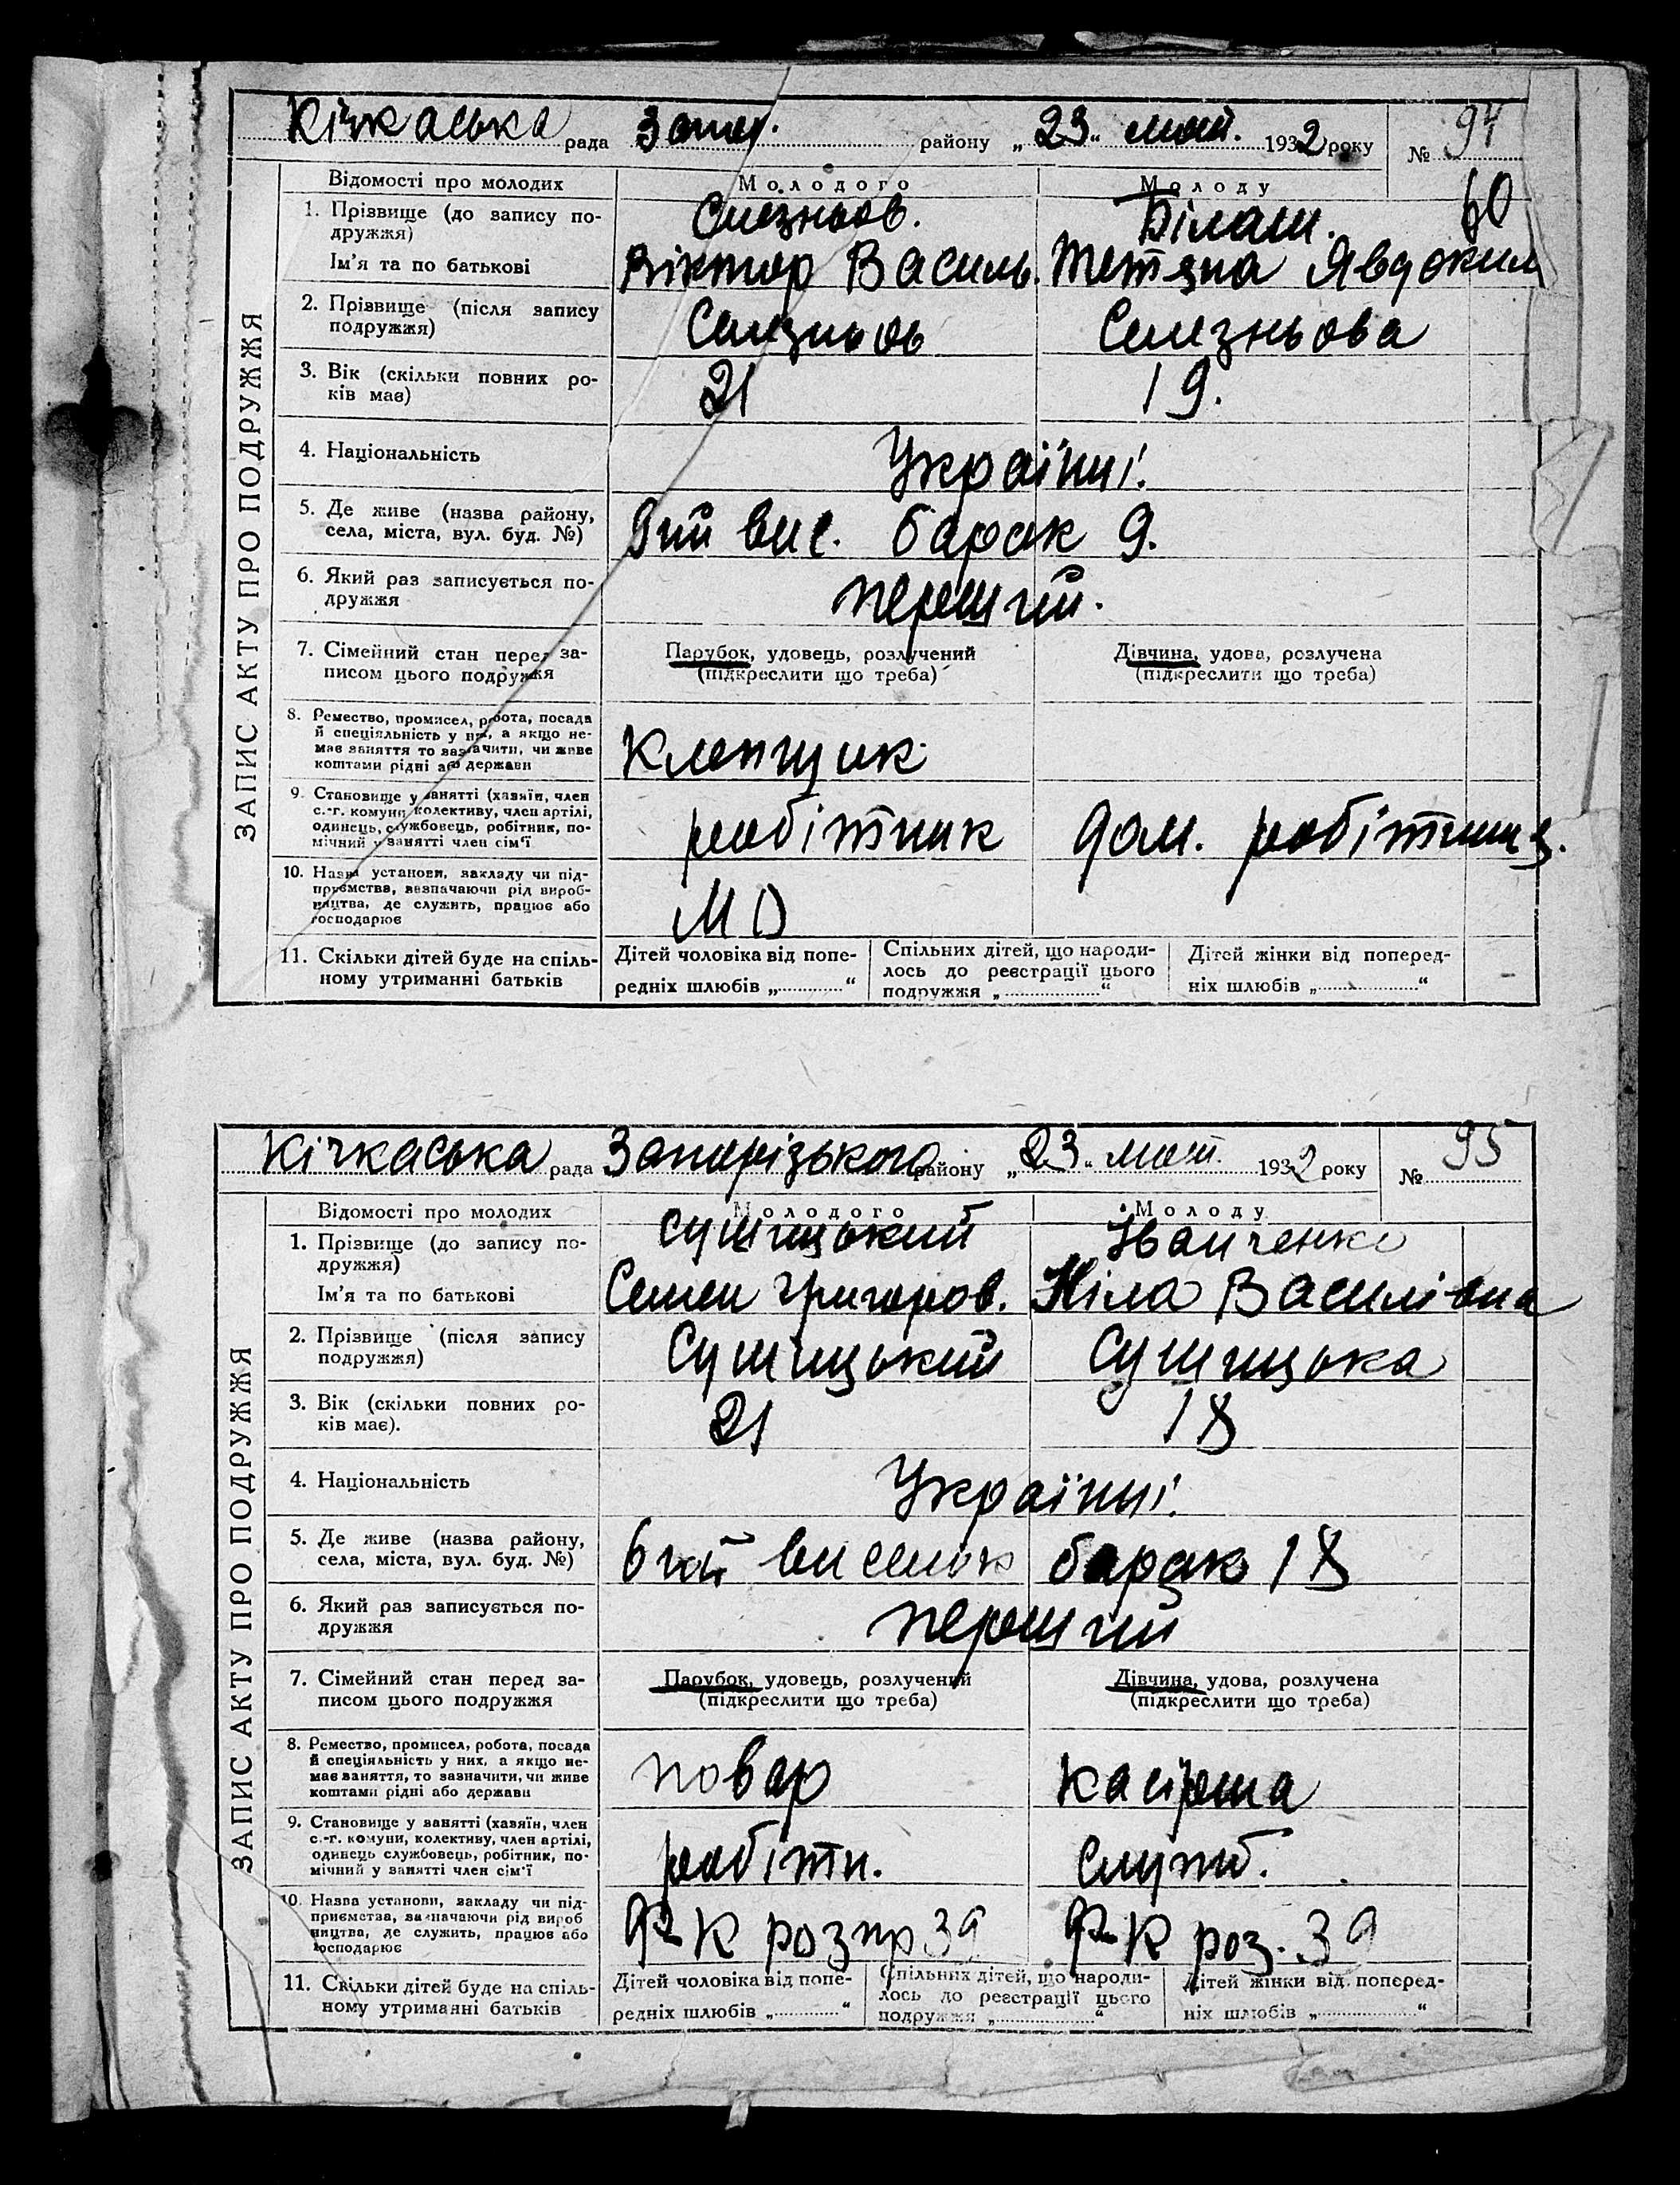 Кічкаська рада Запор. району „23“ мая. 1932 року № 94
60
ЗАПИС АКТУ ПРО ПОДРУЖЖЯ
Відомості про молодих Молодого Молоду
1. Прізвище (до запису по-
дружжя) Селезньов. Білаш.
Ім'я та по батькові Віктор Василь. Тетяна Явдоким
2. Прізвище (після запису
подружжя) Селезньов Селезньова
3. Вік (скільки повних ро-
ків має) 21 19.
4. Національність Українці.
5. Де живе (назва району,
села, міста, вул. буд. №) 9ий вис. барак 9.
6. Який раз записується по-
дружжя перший.
7. Сімейний стан перед за-
писом цього подружжя Парубок, удовець, розлучений Дівчина, удова, розлучена
(підкреслити що треба) (підкреслити що треба)
8. Ремество, промисел, робота, посада
й спеціяльність у них, а якщо не-
має заняття то зазначити, чи живе
коштами рідні або держави Клепщик
9. Становище у занятті (хазяїн, член
с.-г. комуни колективу, член артілі,
одинець, службовець, робітник, по-
мічний у занятті член сім'ї робітник дом. робітниця.
10. Назва установи, закладу чи під-
приємства, везначаючи рід вироб-
ництва, де служить, працює або
господарює
11. Скільки дітей буде на спіль-
ному утриманні батьків Дітей чоловіка від попе-
редніх шлюбів „ “ Спільних дітей, що народи-
лось до реєстрації цього
подружжя „ “ Дітей жінки від поперед-
ніх шлюбів „ “
Кічкаська рада Запорізького району „23“ мая 1932 року № 95
ЗАПИС АКТУ ПРО ПОДРУЖЖЯ
Відомості про молодих Молодого Молоду
1. Прізвище (до запису по-
дружжя) Сушицький Іванченко
Ім'я та по батькові Семен Григоров. Ніла Василівна
2. Прізвище (після запису
подружжя) Сушицький Сушицька
3. Вік (скільки повних ро-
ків має). 21 18
4. Національність Українці.
5. Де живе (назва району,
села, міста, вул. буд. №) 6ий виселок барак 18
6. Який раз записується по-
дружжя перший
7. Сімейний стан перед за-
писом цього подружжя Парубок, удовець, розлучений Дівчина, удова, розлучена
(підкреслити що треба) (підкреслити що треба)
8. Ремество, промисел, робота, посада
й спеціяльність у них, а якщо не-
має заняття, то зазначити, чи живе
коштами рідні або держави повар касірша
9. Становище у занятті (хазяїн, член
с.-г. комуни, колективу, член артілі,
одинець службовець, робітник, по-
мічний у занятті член сім'ї робітн. служб.
10. Назва установи, закладу чи під-
приємства, зазначаючи рід вироб
ництва, де служить, працює або
господарює Ф-К розпр 39 Ф-К роз. 39
11. Скільки дітей буде на спіль-
ному утриманні батьків Дітей чоловіка від попе-
редніх шлюбів „ “ Спільних дітей, що народи-
лось до реєстрації цього
подружжя „ “ Дітей жінки від поперед-
ніх шлюбів „ “